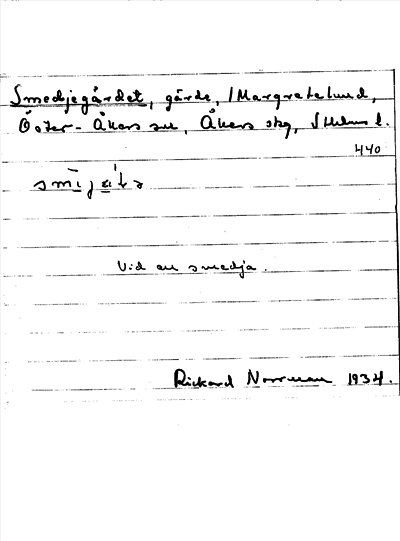 Smedjegärdet, gärde, /Margretelund,
Öster-Åkers sn, Åkers skg, Sthlms l.
440
Vid en smedja.
Rickard Norrman 1934.